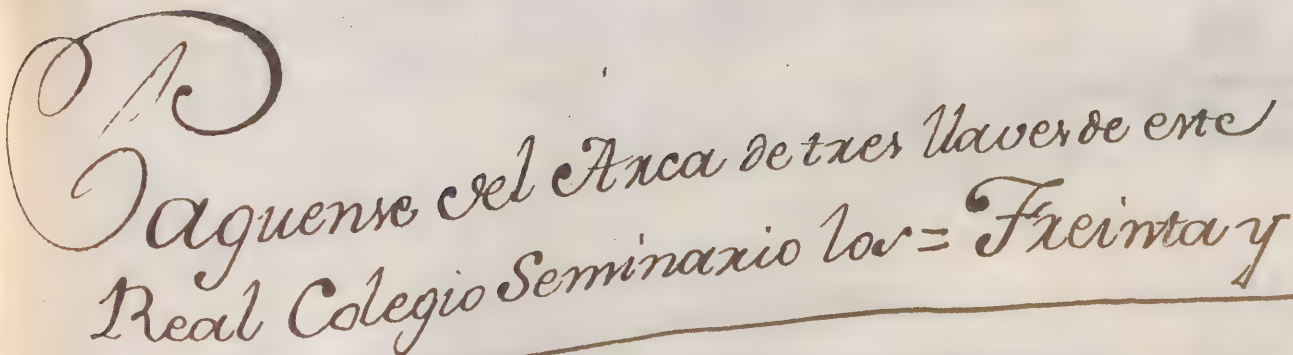 Paguense del Arca de tres llaves de este
Real Colegio Seminario los = Treinta y